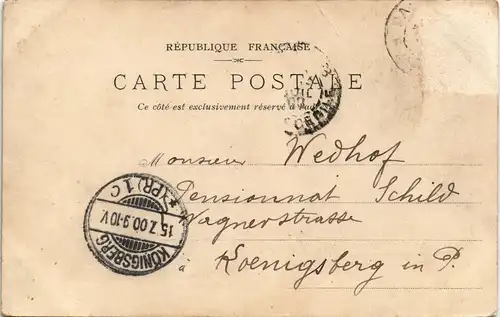 RÉPUBLIQUE FRANÇAISE
CARTE POSTALE
Ce côté est exclusivement réservé à l'ad
Monsieur Wedhof
Pensionnat Schild
Wagnerstrasse
à Koenigsberg in P.
KÖNIGSBERG
15.7.00.9-10V
*(PR) 1C